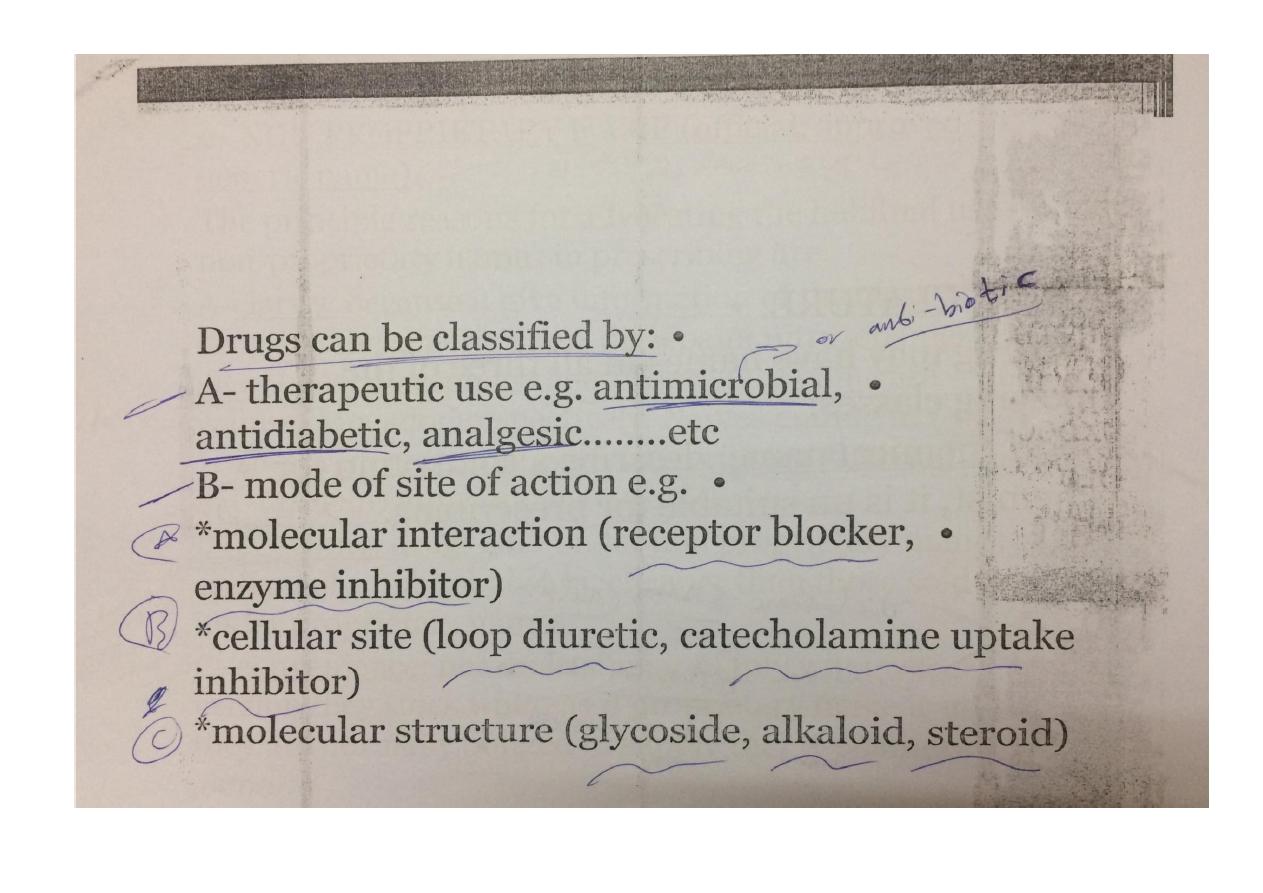 or anti-biotic
Drugs can be classified by: •
A- therapeutic use e.g. antimicrobial, •
antidiabetic, analgesic........etc
B- mode of site of action e.g. •
A *molecular interaction (receptor blocker, •
enzyme inhibitor)
B *cellular site (loop diuretic, catecholamine uptake
inhibitor)
C *molecular structure (glycoside, alkaloid, steroid)